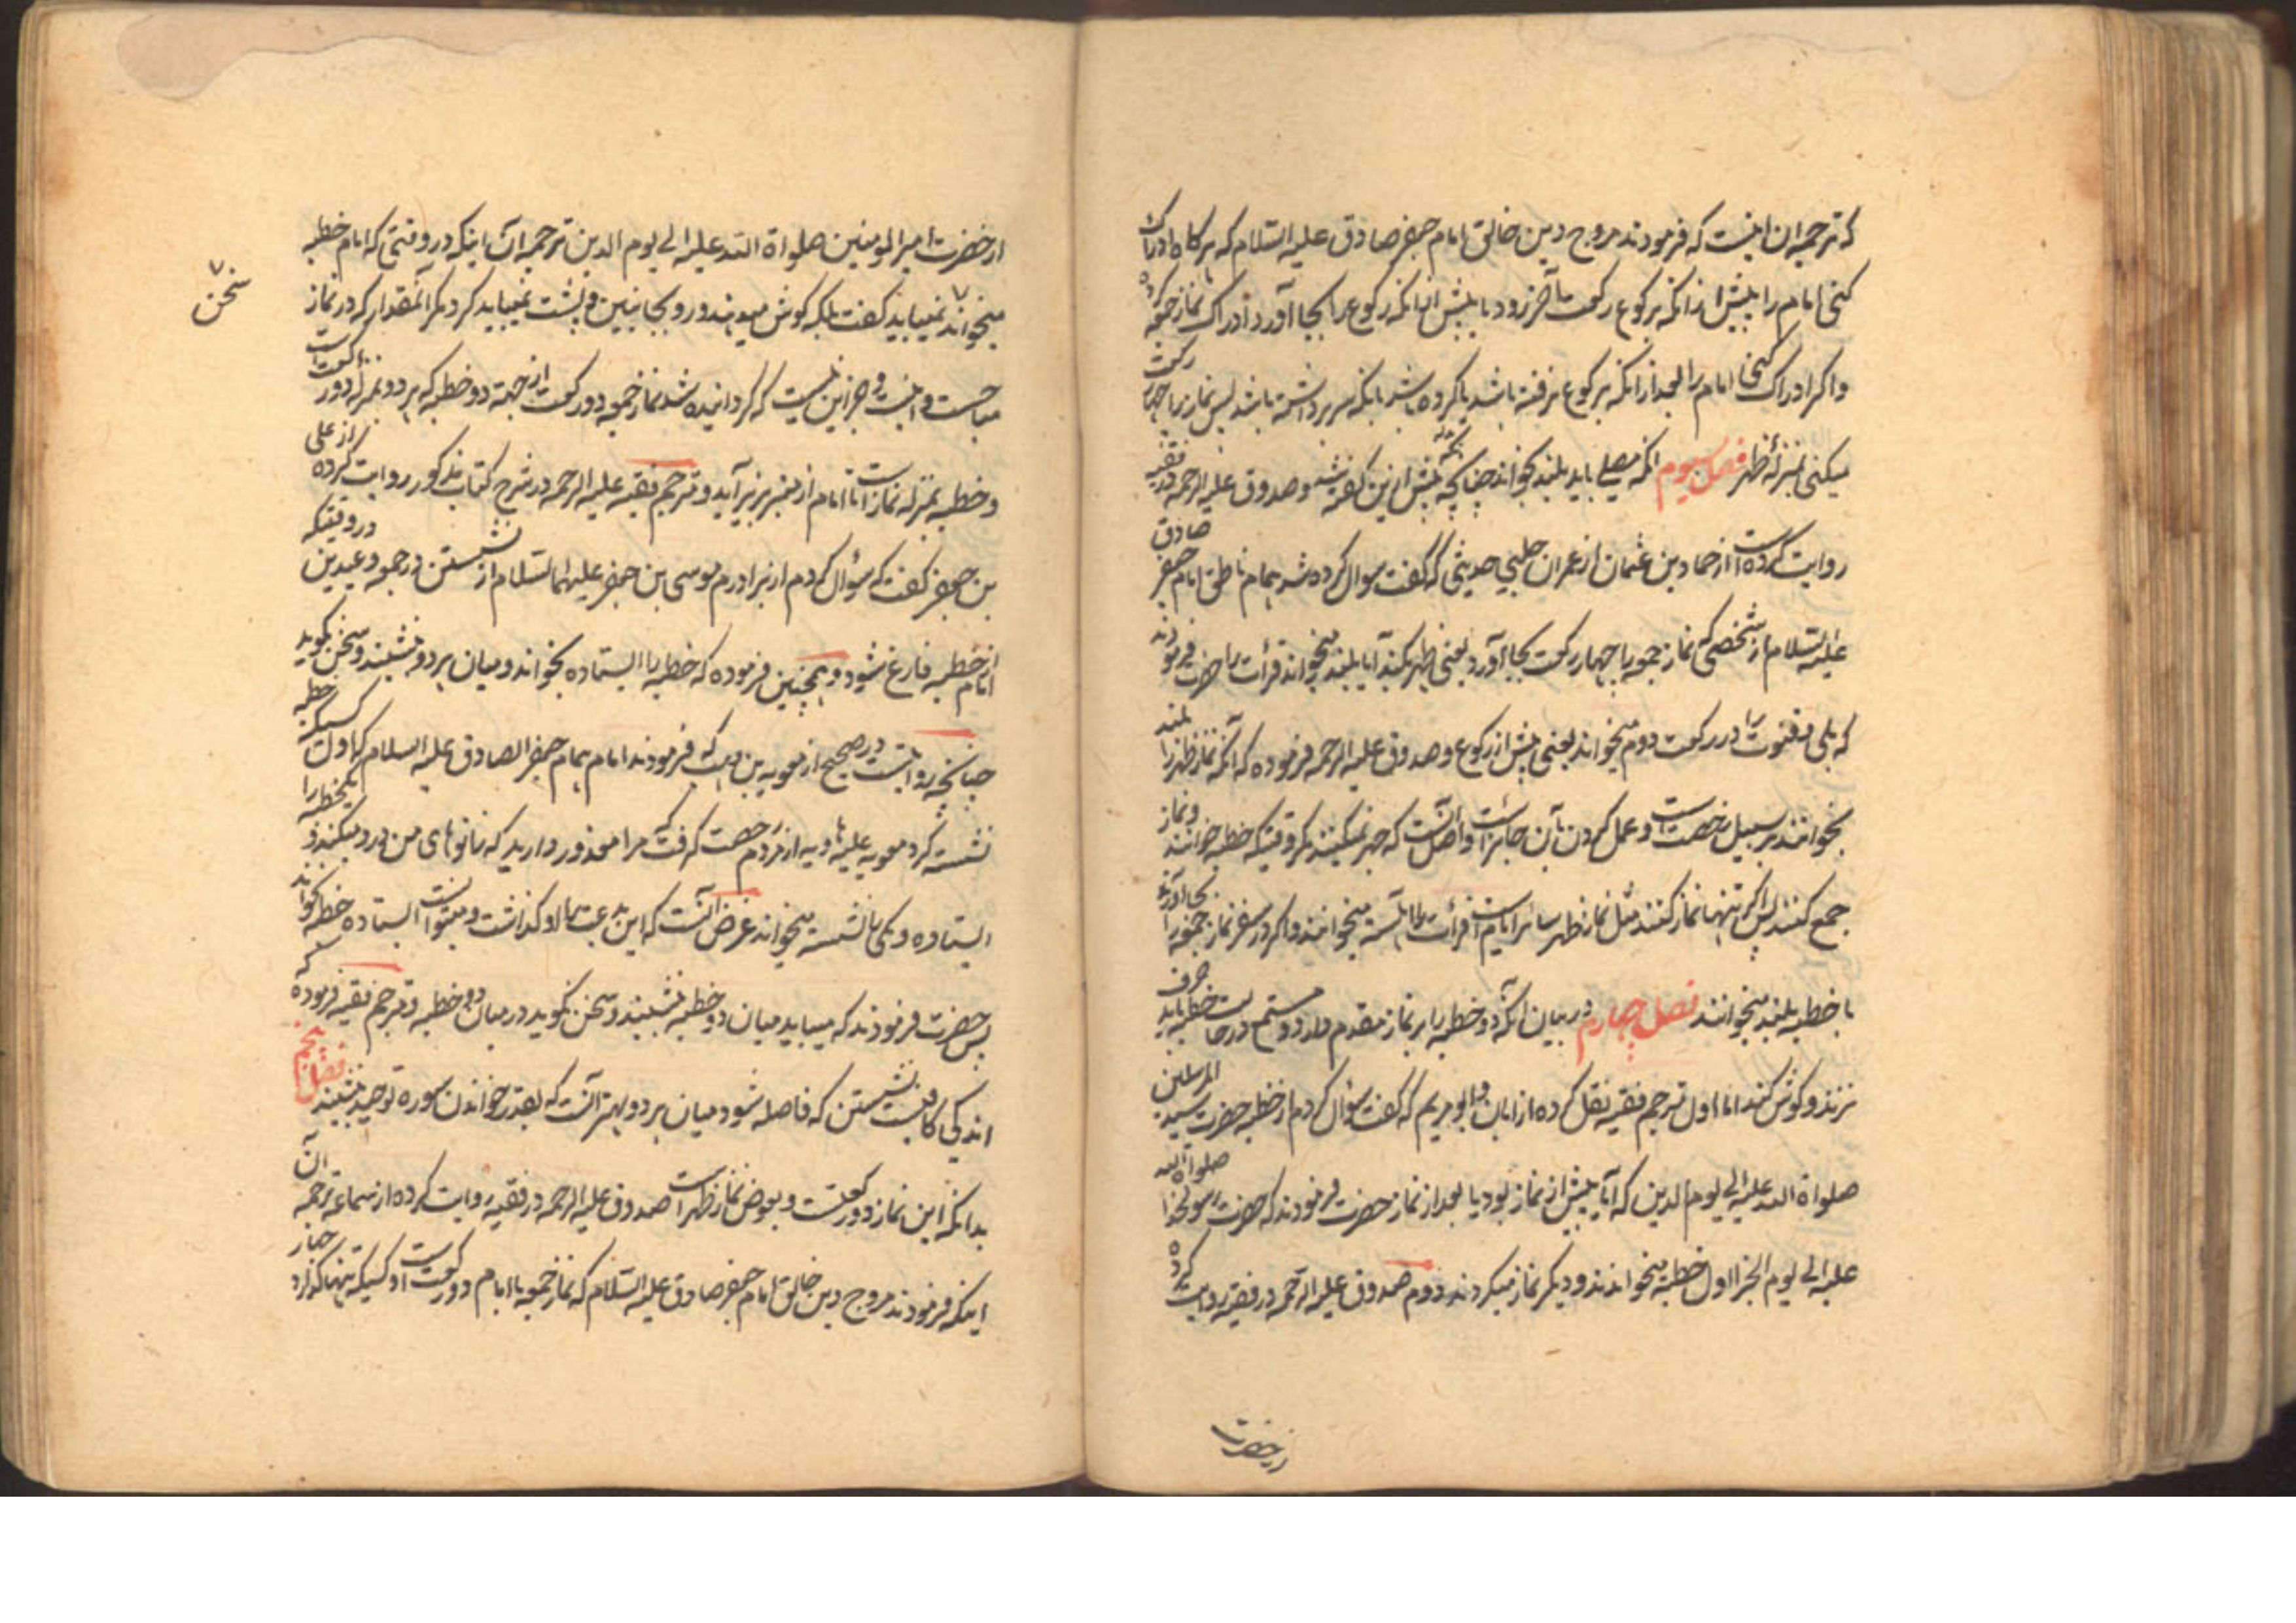 که ترجمه ان اینست که فرمودند مروج دین خالق امام جعفر صادق علیه السلام که هر کاه ادراک
کنی امام را پیش از انکه برکوع رکعت آخر رود یا پیش از انکه رکوع را بجا آورد ادراک نماز جمعه کرده
و اکر ادراک کنی امام را بعد از انکه برکوع رفته باشد یا کرده باشد یا انکه سر برداشته باشد پس نماز را چهار رکعت
میکنی بمنزلهٔ ظهر فصل سیوم انکه مصلی باید بلند بخواند چنانچه پیش ازین کفته شد و صدوق علیه الرحمه در فقیه
روایت کرده است از حماد بن عثمان از عمران حلبی حدیثی که گفت سوال کرده شد بامام ناطق امام جعفر صادق
علیه السلام از شخصی که نماز جمعه را چهار رکعت بجا آورد یعنی ظهر بکند آیا بلند میخواند قرأت را حضرت فرمودند
که بلی و قنوت را در رکعت دوم میخواند یعنی پیش از رکوع و صدوق علیه الرحمه فرموده که آنکه نماز ظهر را بلند
بخوانند بر سبیل رخصت است و عمل کردن بآن جایز است و اصل آنست که جهر نمیکنند مکر وقتیکه خطبه خوانند و نماز
جمع کنند پس اکر تنها نماز کنند مثل نماز ظهر سائر ایام است قرأت را آهسته میخوانند و اکر در سفر نماز جمعه را بجا آورند
با خطبه بلند میخوانند فصل چهارم در بیان آنکه دو خطبه را بر نماز مقدم دارد و مستمع در حالت خطبه باید حرف
نزند و کوش کند اما اول مترجم فقیه نقل کرده از ابان و ابو مریم که کفت سؤال کردم از خطبه حضرت سید المرسلین
صلواة الله علیه الی یوم الدین که آیا پیش از نماز بود یا بعد از نماز حضرت فرمودند که حضرت رسولخدا صلواة الله
علیه الی یوم الجزا اول خطبه میخواندند و دیکر نماز میکردند دوم صدوق علیه الرحمه در فقیه روایت کرده
از حضرت
از حضرت امیر المومنین صلواة الله علیه الی یوم الدین ترجمه آن اینکه در وقتی که امام خطبه
میخواند نمیباید کفت بلکه کوش میدهند و رو بجانبین و پشت نمیباید کرد مکر آنمقدار که در نماز
سخن
مباحست و اینست و جز این نیست که کردانیده شد نماز جمعه دو رکعت از جهة دو خطبه که هر دو بمنزله دو رکعت است
و خطبه بمنزله نماز است تا امام از منبر بزیر آید و مترجم فقیه علیه الرحمه در شرح کتاب مذکور روایت کرده از علی
بن جعفر کفت که سؤال کردم از برادرم موسی بن جعفر علیهما السلام از نشستن در جمعه و عیدین در وقتیکه
امام از خطبه فارغ شود و همچنین فرموده که خطبه را ایستاده بخواند و میان هر دو بنشیند و سخن نکوید
چنانچه روایتست در صحیح از معویه بن وهب که فرمودند امام همام جعفر الصادق علیه السلام که اول کسیکه خطبه
نشسته کرد معویه علیه الهاویه از مردم رخصت کرفت که مرا معذور دارید که زانوهای من درد میکند و یکخطبه را
ایستاده و یکی را نشسته میخواند غرض آنست که این بدعت را او کذاشت و میتوانست ایستاده خطبه بخواند
پس حضرت فرمودند که میباید میان دو خطبه بنشیند و سخن نکوید در میان دو خطبه و مترجم فقیه فرموده که
اندکی کافیست نشستن که فاصله شود میان هر دو و بهتر آنست که بقدر خواندن سوره توحید بنشیند فصل پنجم
بدانکه این نماز دو رکعتست و بعوض نماز ظهر است صدوق علیه الرحمه در فقیه روایت کرده از سماعه ترجمه آن
اینکه فرمودند مروج دین خالق امام جعفر صادق علیه السلام که نماز جمعه با امام دو رکعت است و کسیکه تنها کذارد چهار